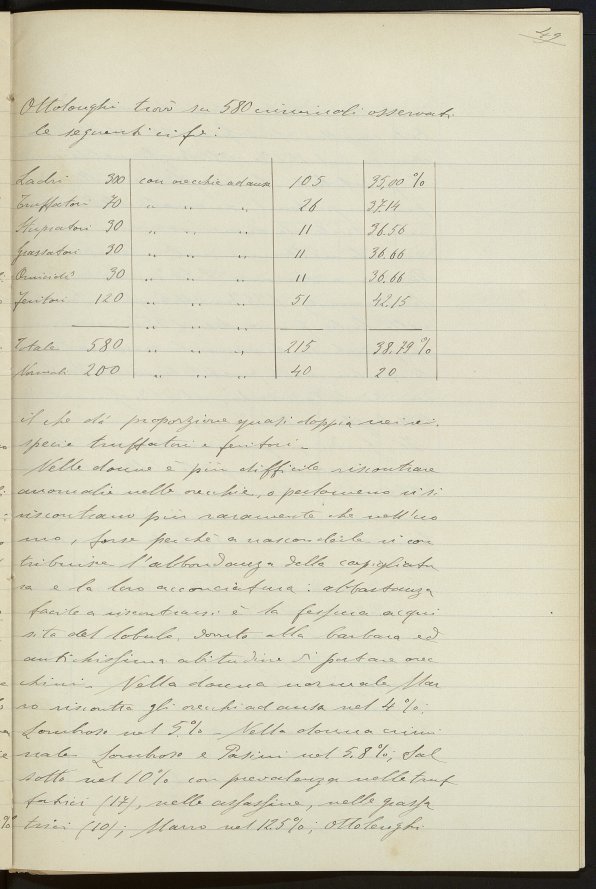 49
Ottolenghi trovò su 580 criminali osservati
le seguenti cifre:
Ladri 300 con orecchie ad ansa 105 35,00 %
Truffatori 70 " " " 26 37.14
Stupratori 30 " " " 11 36.56
Grassatori 30 " " " 11 36.66
Omicidi 30 " " " 11 36.66
Feritori 120 " " " 51 42.15
" " "
Totale 580 " " " 215 38.79 %
Normali 200 " " " 40 20
il che dà proporzione quasi doppia nei rei.
specie truffatori e feritori.
Nelle donne è più difficile riscontrare
anomalie nelle orecchie, o perlomeno vi si
riscontrano più raramente che nell'uo
mo, forse perchè a nasconderle vi con
tribuisce l'abbondanza della capigliatu
ra e la loro acconciatura: abbastanza
facile a riscontrarsi è la fessura acqui
sita del lobulo, dovuta alla barbara ed
antichissima abitudine di portare orec
chini. Nella donna normale Mar
ro riscontra gli orecchi ad ansa nel 4 %,
Lombroso nel 5 %. Nella donna crimi
nale Lombroso e Pasini nel 5.8 %, Sal
sotto nel 10 % con prevalenza nelle truf
fatrici (17), nelle assassine, nelle grassa
trici (10); Marro nel 12.5 %; Ottolenghi